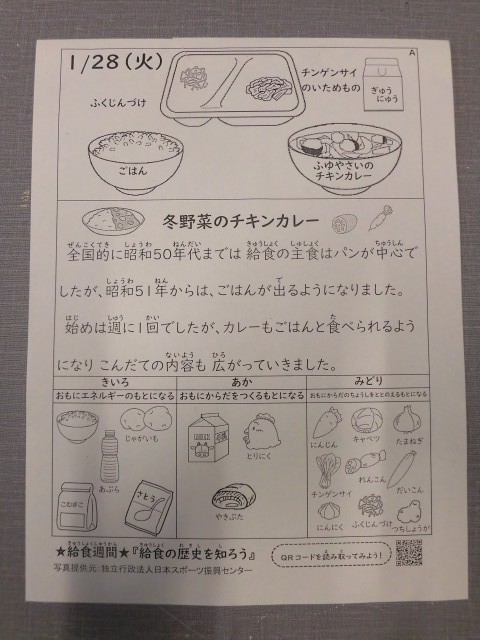 1/28(火)
A
ふくじんづけ
チンゲンサイ
のいためもの
ぎゅう
にゅう
ごはん
ふゆやさいの
チキンカレー
冬野菜のチキンカレー
ぜんこくてき しょうわ ねんだい きゅうしょく しゅしょく ちゅうしん
全国的に昭和50年代までは 給食の主食はパンが中心で
しょうわ ねん で
したが、昭和51年からは、ごはんが出るようになりました。
はじ しゅう かい た
始めは週に1回でしたが、カレーもごはんと食べられるよう
ないよう ひろ
になり こんだての内容も 広がっていきました。
きいろ
おもにエネルギーのもとになる
じゃがいも
あぶら
こむぎこ
さとう
あか
おもにからだをつくるもとになる
とりにく
やきぶた
みどり
おもにからだのちょうしをととのえるもとになる
にんじん
キャベツ
たまねぎ
チンゲンサイ
れんこん
だいこん
にんにく
ふくじんづけ
つちしょうが
きゅうしょくしゅうかん きゅうしょく れきし し
★給食週間★『給食の歴史を知ろう』
写真提供元:独立行政法人日本スポーツ振興センター
よ と
QRコードを読み取ってみよう!